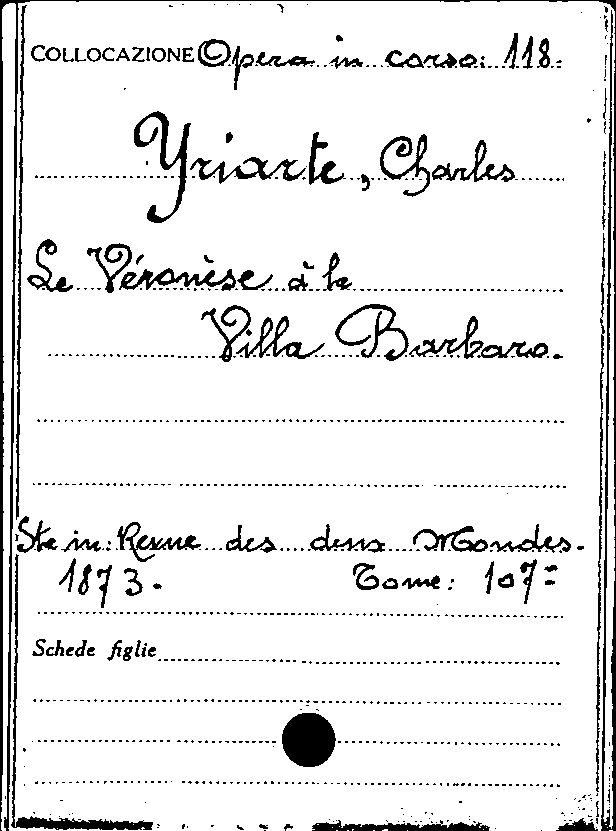 COLLOCAZIONE Opera in corso: 118.
Yriarte, Charles
Le Véronèse à la
Villa Barbaro.
Sta in: Revue des deux Mondes.
1873. Tome: 107=
Schede figlie